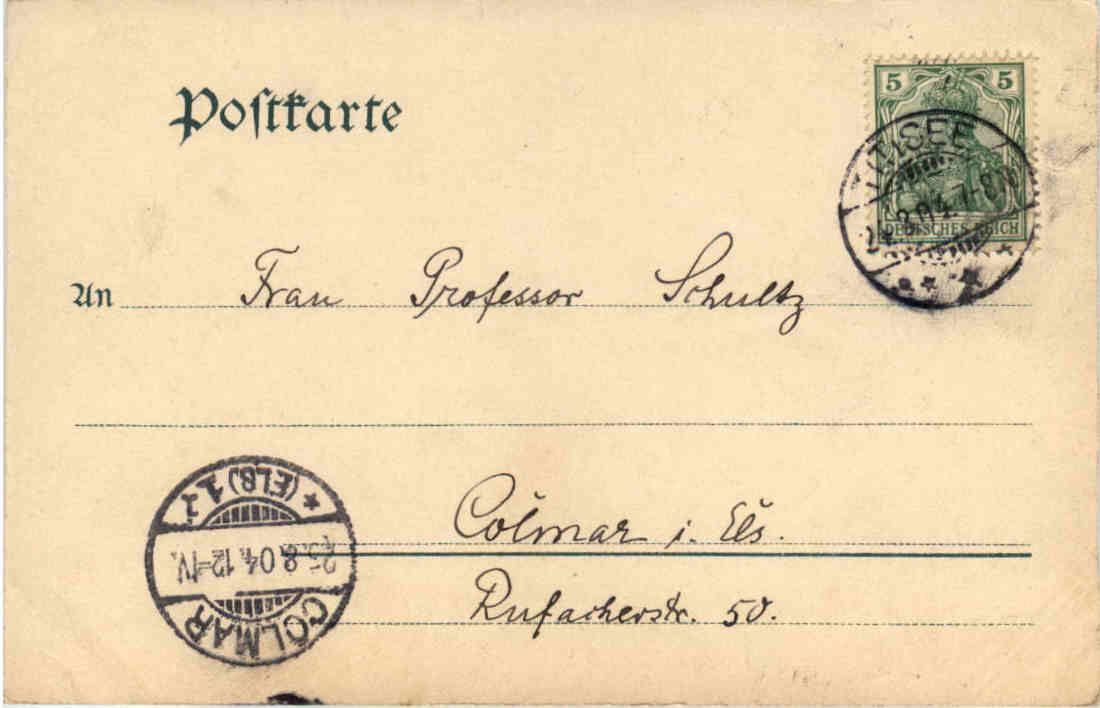 Postkarte
5 5
DEUTSCHES REICH
TITISEE
24.8.04. 7-8N
An Frau Professor Schultz
Colmar i. Els.
Rufacherstr. 50.
COLMAR
25.8.04. 12-1V.
* (ELS) 1